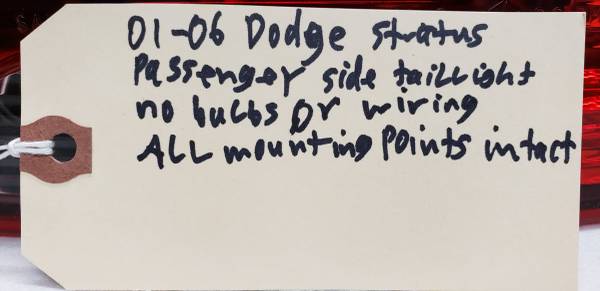 01-06 Dodge Stratus
Passenger side tailLight
no bulbs or wiring
ALL mounting Points intact